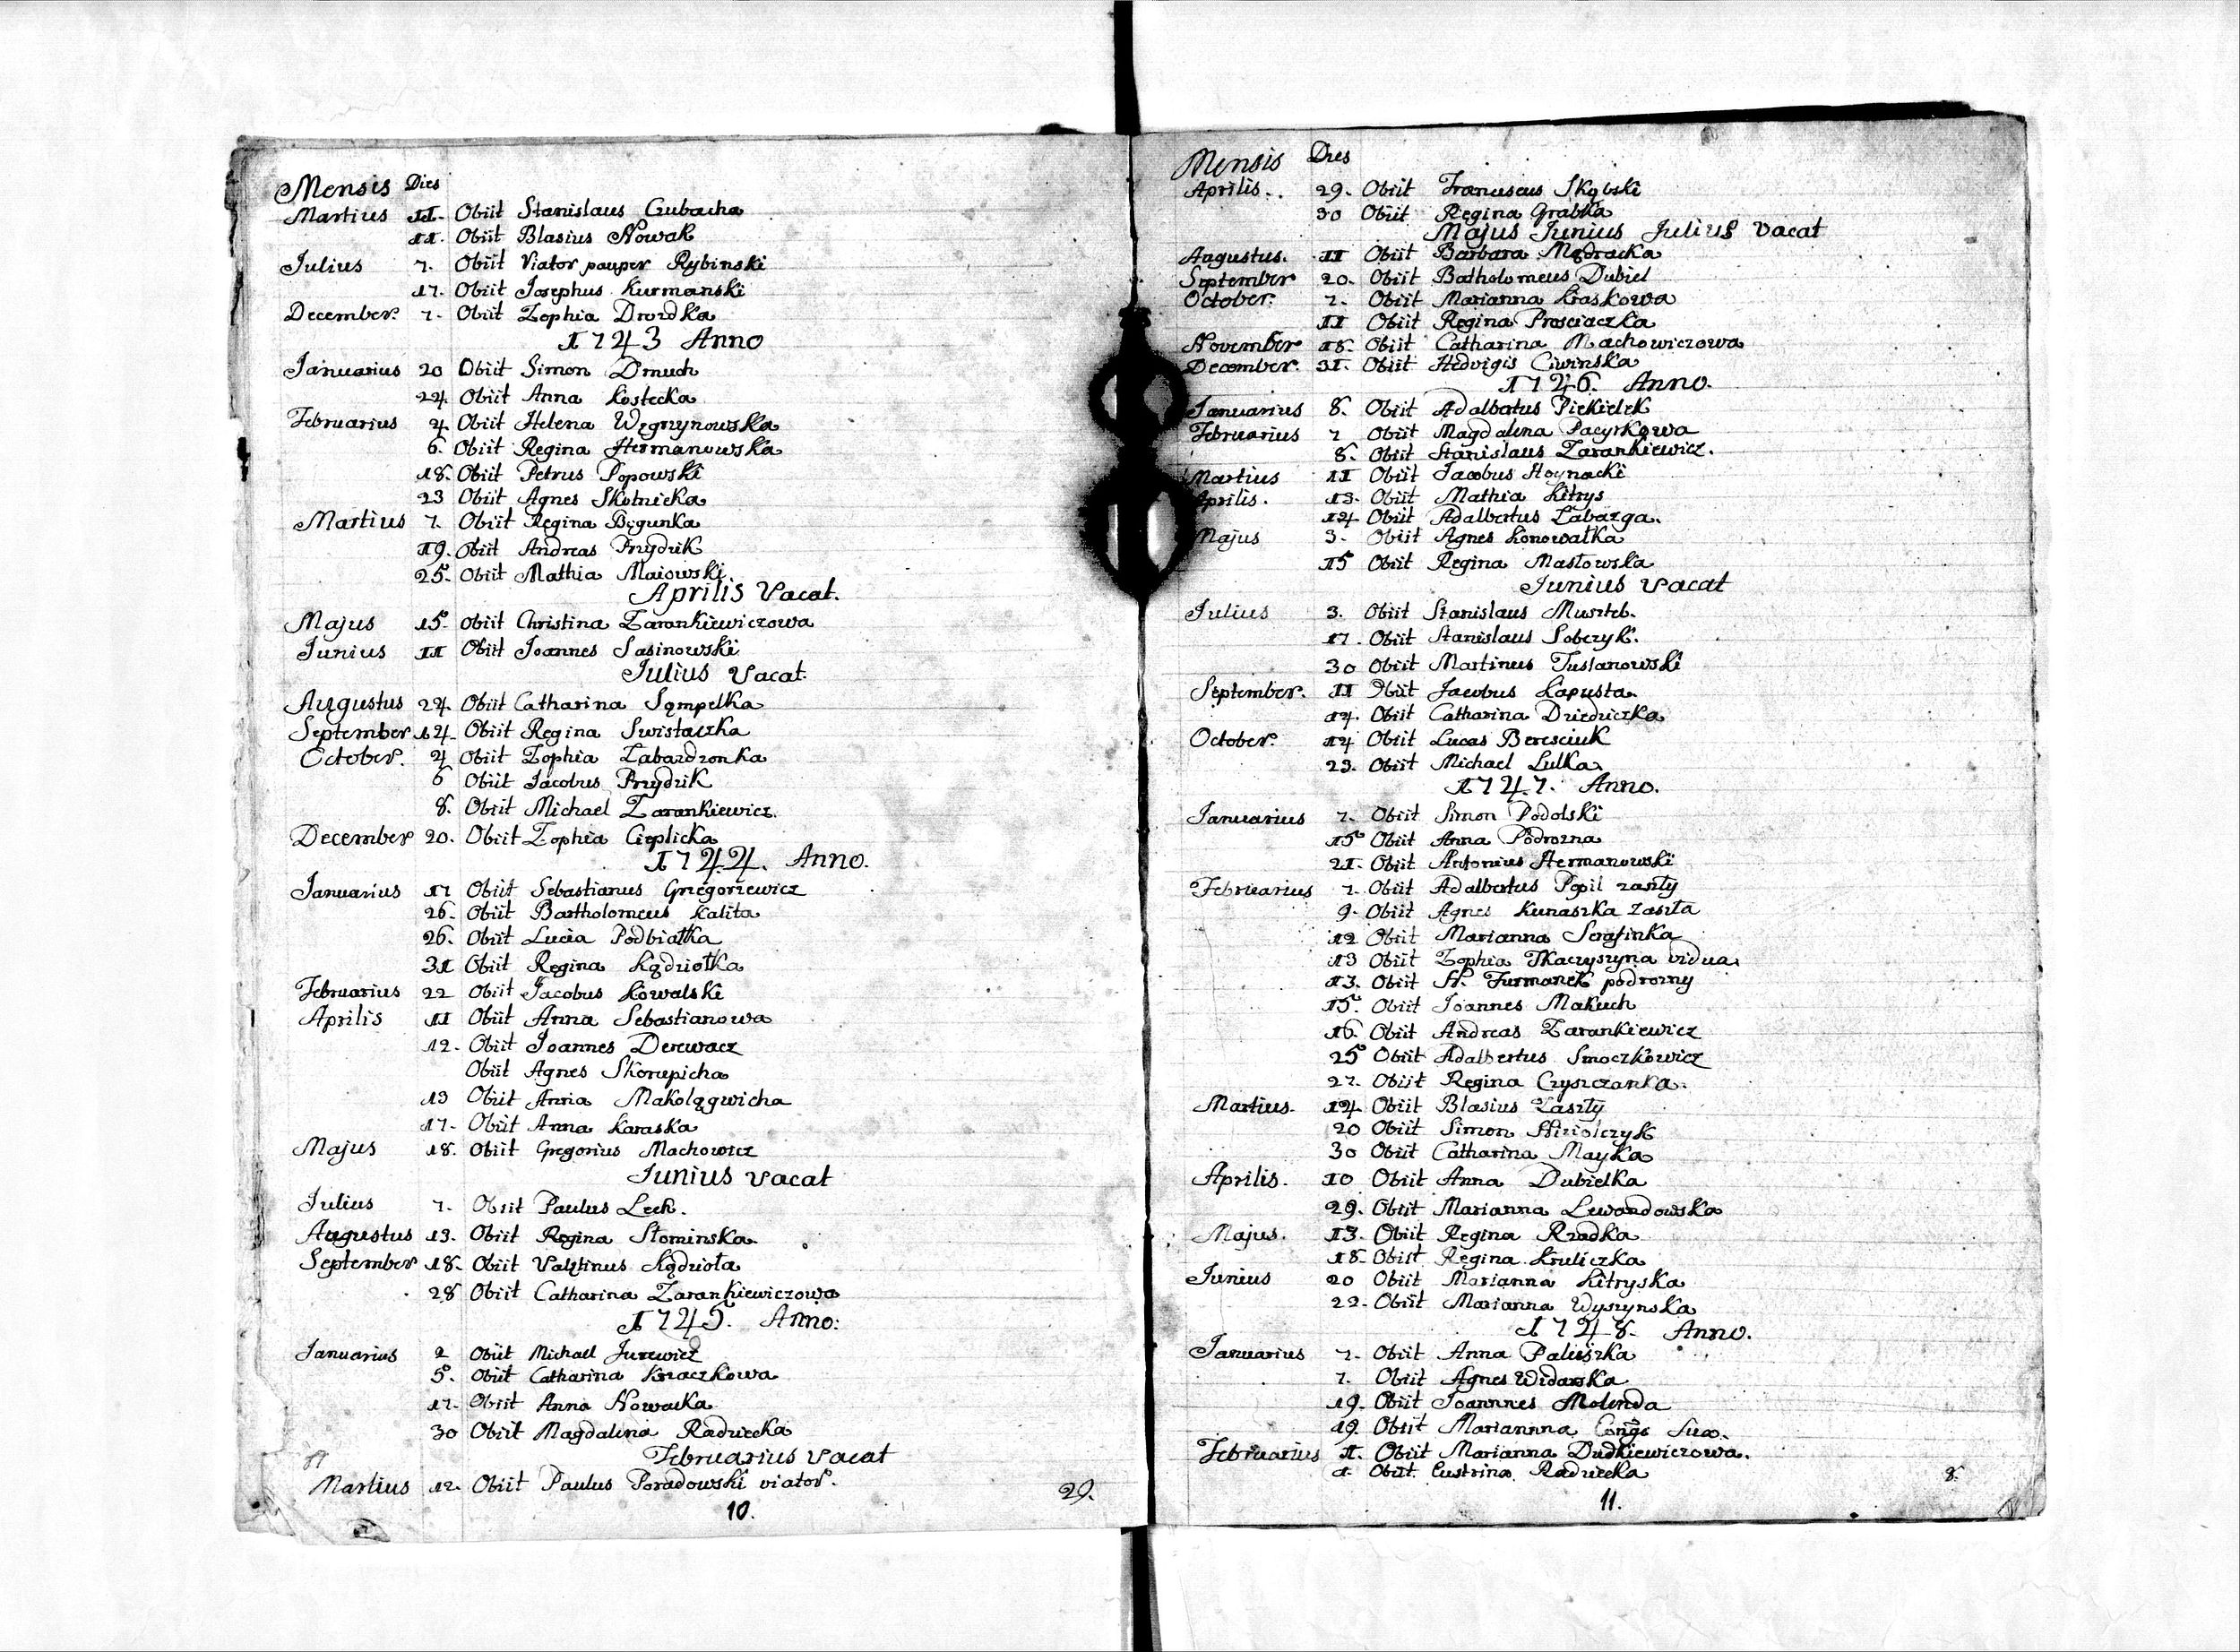 Mensis Dies
Martius 11. Obiit Stanislaus Czubacha
11. Obiit Blasius Nowak
Julius 7. Obiit Viator pauper Rybinski
17. Obiit Josephus Kurmanski
December. 7. Obiit Zophia Drozdka
1743 Anno
Januarius 20 Obiit Simon Dmuch
24. Obiit Anna Kostecka
Februarius 4 Obiit Helena Węgrzynowska
6. Obiit Regina Hermanowska
18. Obiit Petrus Popowski
23 Obiit Agnes Skotnicka
Martius 7. Obiit Regina Bęgunka
19. Obiit Andreas Przydzik
25. Obiit Mathia Maiowski.
Aprilis Vacat.
Majus 15. Obiit Christina Zarankiewiczowa
Junius 11 Obiit Joannes Sasinowski
Julius Vacat.
Augustus 24. Obiit Catharina Sąmpelka
September 14. Obiit Regina Swistaczka
October. 4 Obiit Zophia Zabazdzonka
6 Obiit Jacobus Przydzik
8. Obiit Michael Zarankiewicz.
December 20. Obiit Zophia Cieplicka
1744. Anno.
Januarius 17 Obiit Sebastianus Grzegorzewicz
26. Obiit Bartholomeus Kalita
26. Obiit Lucia Podbiałka
31 Obiit Regina Kądziołka
Februarius 22 Obiit Jacobus Kowalski
Aprilis 11 Obiit Anna Sebastianowa
12. Obiit Joannes Derewacz
Obiit Agnes Skorupicha
13 Obiit Anna Makolągwicha
17. Obiit Anna Karaska
Majus 18. Obiit Gregorius Machowicz
Junius vacat
Julius 7. Obiit Paulus Lech.
Augustus 13. Obiit Regina Słominska
September 18. Obiit Valętinus Kądzioła
28 Obiit Catharina Zarankiewiczowa
1745. Anno:
Januarius 2 Obiit Michael Jurewicz
5. Obiit Catharina Kraczkowa
17. Obiit Anna Nowacka
30 Obiit Magdalena Radziecka
Februarius vacat
Martius 12. Obiit Paulus Poradowski viator.
29.
10.
Mensis Dies
Aprilis. 29. Obiit Franciscus Skąbski
30 Obiit Regina Grabka
Majus Junius Julius vacat
Augustus. 11 Obiit Barbara Mądracka
September 20. Obiit Batholomeus Dubiel
October. 7. Obiit Marianna Kraskowa
11 Obiit Regina Prosciaczka
November 18. Obiit Catharina Machowiczowa
December. 31. Obiit Hedvigis Ciwinska
1746. Anno.
Januarius 8. Obiit Adalbertus Piekielek
Februarius 7 Obiit Magdalena Pacyrkowa
8. Obiit Stanislaus Zarankiewicz.
Martius 11 Obiit Jacobus Hoynacki
Aprilis. 13. Obiit Mathia Kitrys
14 Obiit Adalbertus Labazga.
Majus 3. Obiit Agnes Konowałka
15 Obiit Regina Masłowska
Junius vacat
Julius 3. Obiit Stanislaus Muszteb.
17. Obiit Stanislaus Sobczyk.
30 Obiit Martinus Tustanowski
September. 11 Obiit Jacobus Kapusta
14. Obiit Catharina Dziedziczka
October. 14 Obiit Lucas Beresciuk
23. Obiit Michael Lulka
1747. Anno.
Januarius 7. Obiit Simon Podolski
15 Obiit Anna Podrozna
21. Obiit Antonius Hermanowski
Februarius 7. Obiit Adalbertus Popil zaszły
9. Obiit Agnes Kunaszka zaszła
12 Obiit Marianna Serafinka
13 Obiit Zophia Tkaczyszyna vidua
13. Obiit St. Furmanek podrozny
15. Obiit Joannes Makuch
16. Obiit Andreas Zarankiewicz
25 Obiit Adalbertus Smoczkowicz
27. Obiit Regina Czyszczanka.
Martius. 14 Obiit Blasius Zaszły
20 Obiit Simon Niziolczyk
30 Obiit Catharina Mayka
Aprilis. 10 Obiit Anna Dubielka
29. Obiit Marianna Lewandowska
Majus. 13. Obiit Regina Rzadka
18. Obiit Regina Kruliczka
Junius 20 Obiit Marianna Kitryska
22. Obiit Marianna Wyszynska
1748. Anno.
Januarius 7. Obiit Anna Paluszka
7. Obiit Agnes Widarska
19. Obiit Joannnes Molenda
19. Obiit Mariannna
Februarius 1. Obiit Marianna Dudkiewiczowa.
1. Obiit. Radziecka
8.
11.